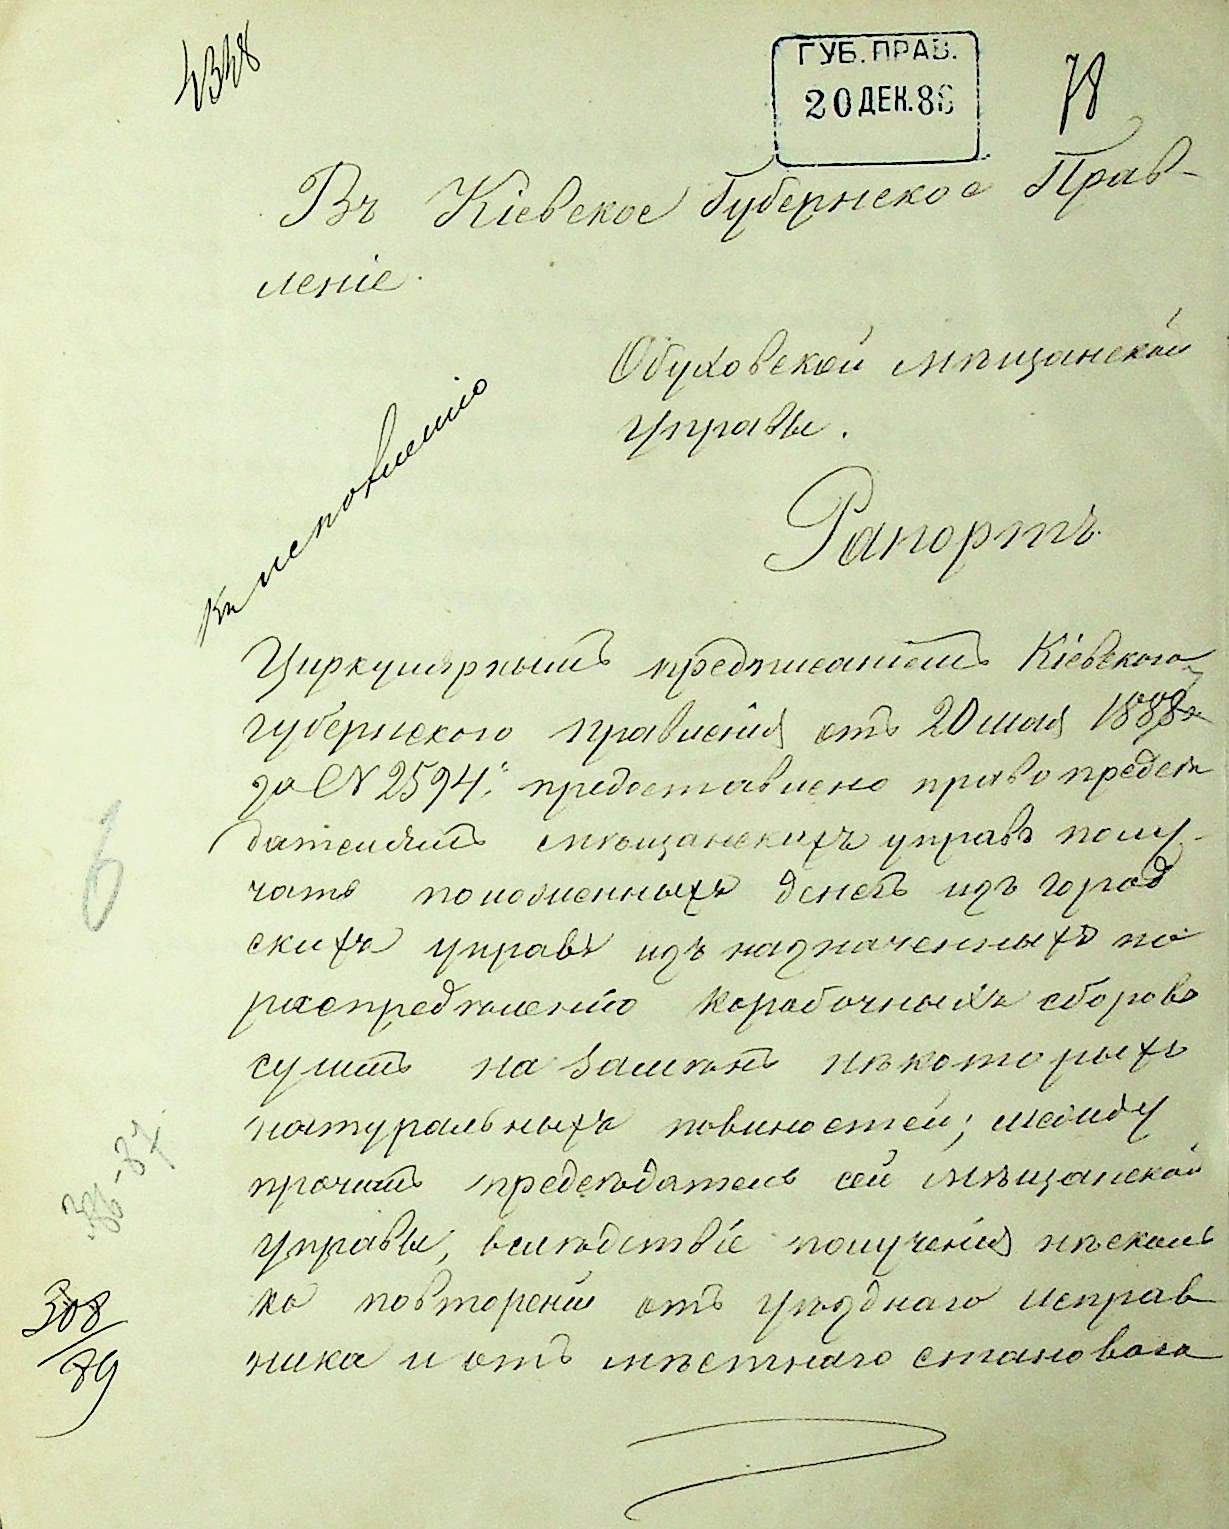 4348
ГУБ. ПРАВ.
20 ДЕК. 88
78
Въ Кіевское Губернское Прав-
леніе.
Обуховской мѣщанской
управы.
Къ исполненію
Рапортъ
Циркулярнымъ предписаніемъ Кіевского
губернского правленія отъ 20 мая 1888 г
за № 2594: предоставлено право предсѣ
дателямъ мѣщанскихъ управъ полу-
чать положенныхъ денегъ изъ город
скихъ управъ изъ назначенныхъ по
распредѣленію коробочныхъ сборовъ
сумъ на замѣнъ нѣкоторыхъ
натуральныхъ повиностей; между
прочимъ предсѣдатель сей мѣщанской
управы, вслѣдствіе полученія нѣсколь
ко повтореній отъ уѣзднаго исправ
ника и отъ мѣстнаго становаго
6
36-87
308
/89